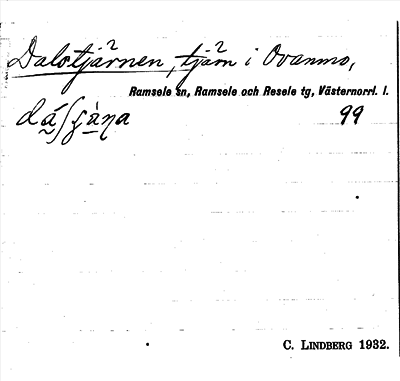 Dalstjärnen, tjärn i Ovanmo,
Ramsele sn, Ramsele och Resele tg, Västernorrl. l.
99
C. LINDBERG 1932.